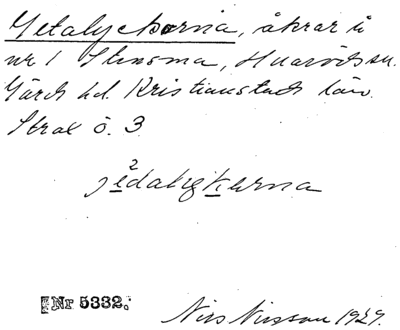 Getalyckorna, åkrar å
nr 1 Stensma, Huaröds sn.
Gärds hd. Kristianstads län.
Strax ö. 3
Nr 5332.
Nils Nilsson 1929.